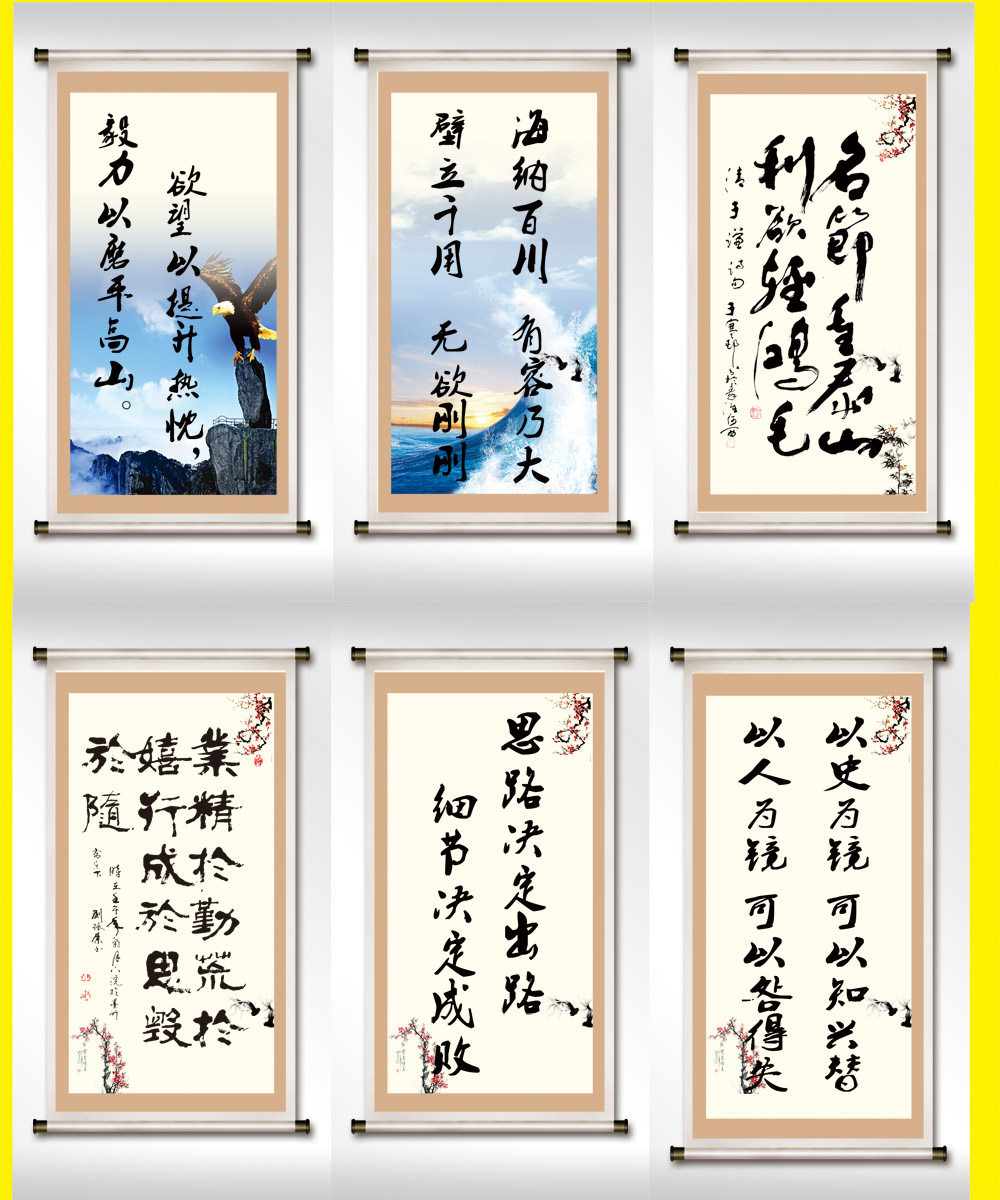 欲望以提升热忱，
毅力以磨平高山。
海纳百川 有容乃大
壁立千用 无欲刚刚
名節重泰山
利欲輕鴻毛
清于谦诗句
業精於勤荒於
嬉行成於思毀
於隨
思路决定出路
细节决定成败
以史为镜 可以知兴替
以人为镜 可以咎得失